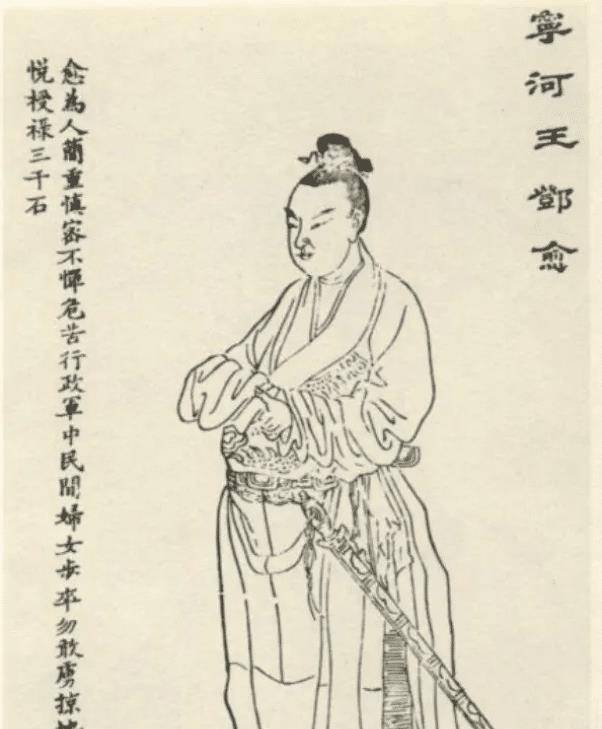 寧河王鄧愈
愈為人簡重慎密不憚危苦行政軍中民間婦女步卒勿敢虜掠
悅授祿三千石